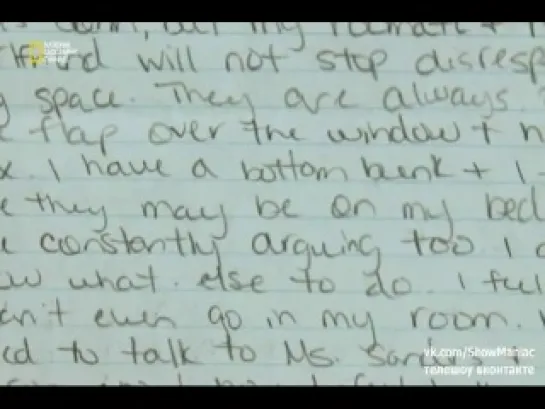 dorm, but my roomate +
will not stop disresp
space. They are always
flap over the window +
. I have a bottom bunk + I
they may be on my bed
constantly arguing too I
ow what else to do. I feel
an't even go in my room.
ed to talk to Ms. Sand
vk.com/ShowManiac
телешоу вконтакте